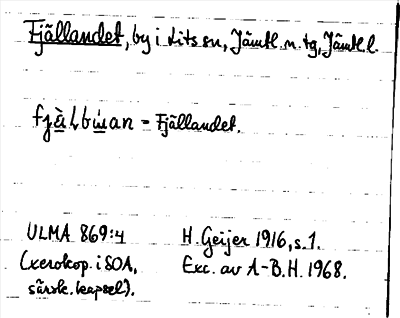 Fjällandet, by i Lits sn, Jämtl. n. tg, Jämtl. l.
fjä̀Lbɯ́an = Fjällandet.
ULMA 869:4 H. Geijer 1916, s. 1.
(xerokop. i SOA, Exc. av A-B.H. 1968.
särsk. kapsel).